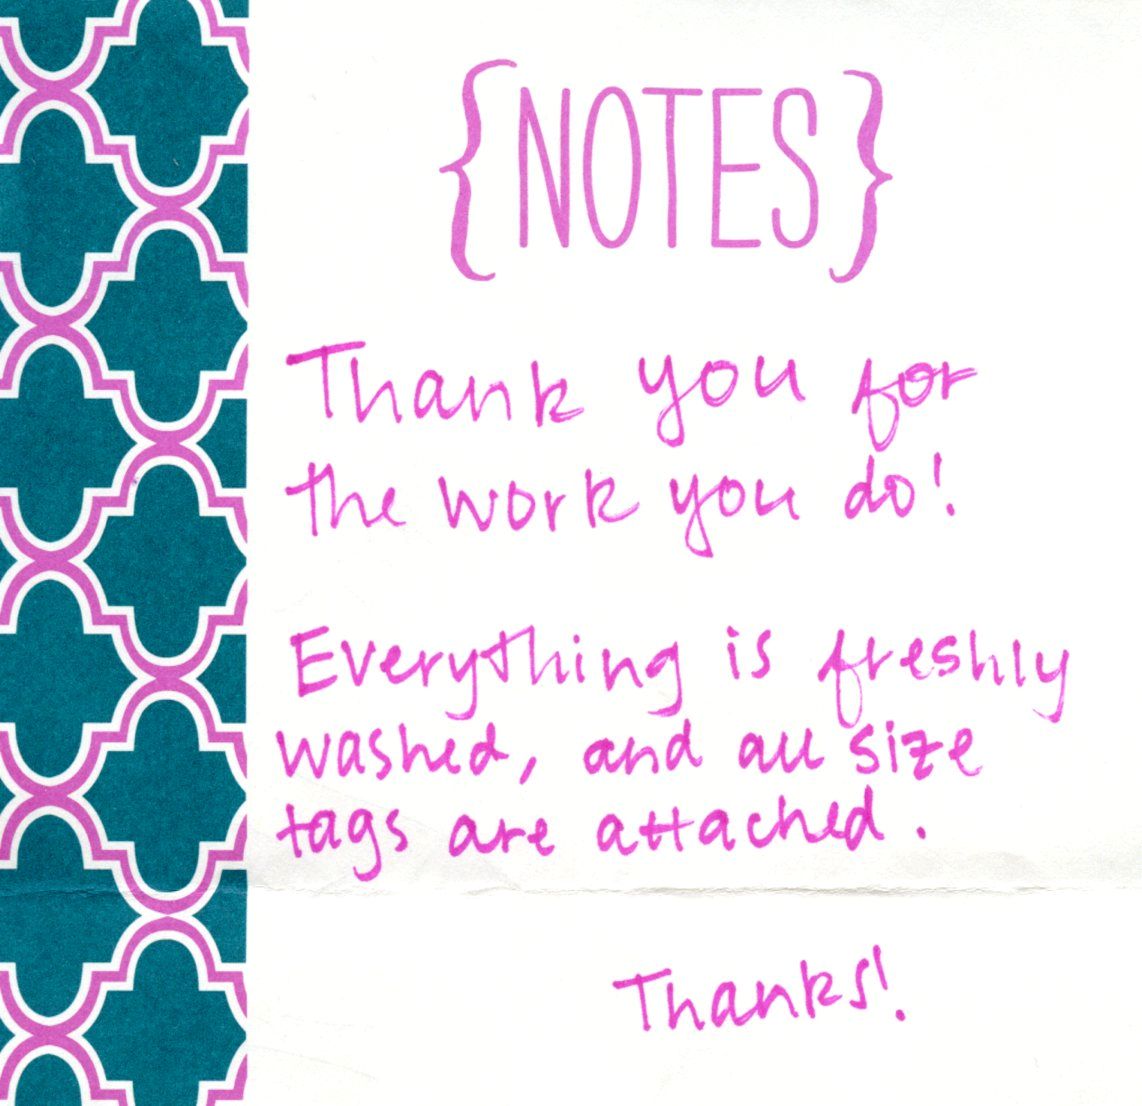 {NOTES}
Thank you for
the work you do!
Everything is freshly
washed, and all size
tags are attached.
Thanks!